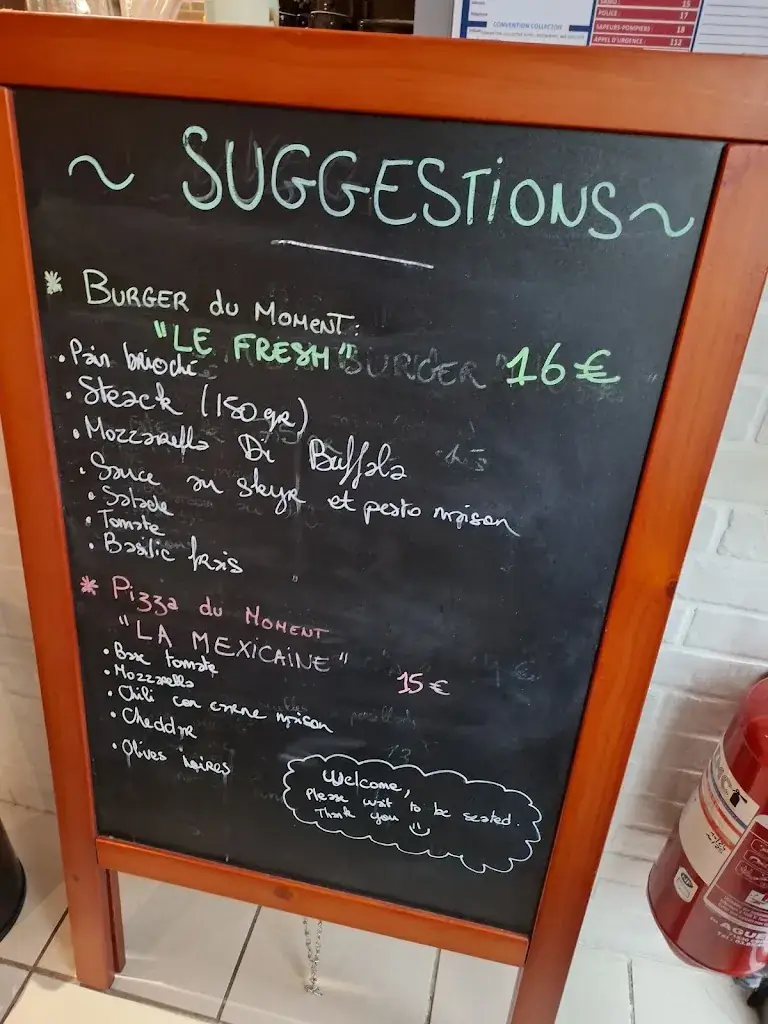 CONVENTION COLLECTIVE
POLICE : 17
SAPEURS-POMPIERS 18
APPEL D'URGENCE : 112
~ SUGGESTIONS ~
* BURGER DU MOMENT :
"LE FRESH" BURGER 16 €
• Pain brioché
• Steack (150 gr)
• Mozzarella Di Buffala
• Sauce au skyr et pesto maison
• Salade
• Tomate
• Basilic frais
* Pizza du MOMENT
"LA MEXICAINE" 15 €
• Base tomate
• Mozzarella
• Chili con carne maison
• Cheddar
• Olives noires
Welcome,
Please wait to be seated.
Thank you